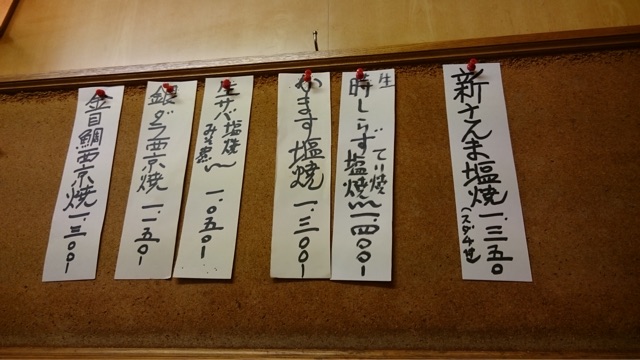 新さんま塩焼 一.三五〇
(スダチ付)
生
時しらず塩焼 一.四〇〇ー
てり焼
かます塩焼 一.三〇〇ー
生サバ塩焼 一.〇五〇ー
みそ煮
銀ダラ西京焼 一.一五〇ー
金目鯛西京焼 一.三〇〇ー